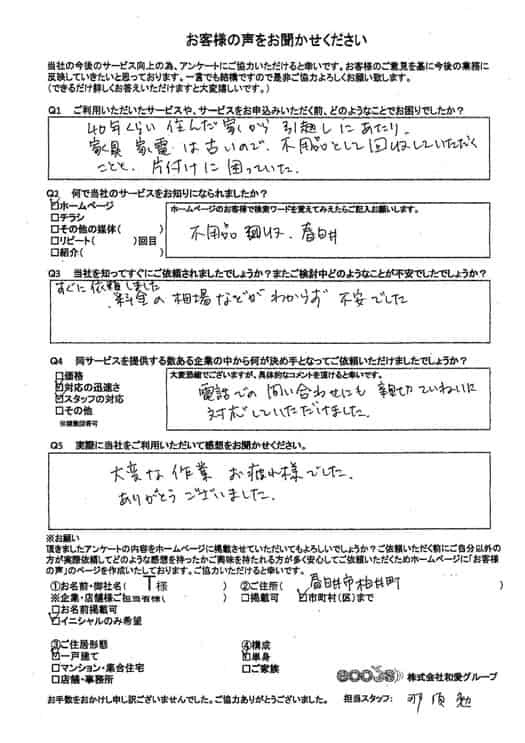 お客様の声をお聞かせください
当社の今後のサービス向上の為、アンケートにご協力いただけると幸いです。お客様のご意見を基に今後の業務に
反映していきたいと思っております。一言でも結構ですので是非ご協力よろしくお願い致します。
（できるだけ詳しくお答えいただけますと大変嬉しいです。）
Q1 ご利用いただいたサービスや、サービスをお申込みいただく前、どのようなことでお困りでしたか？
40年くらい住んだ家から引越しにあたり、
家具 家電は古いので、不用品として回収していただく
ことと、片付けに困っていた。
Q2 何で当社のサービスをお知りになられましたか？
☑ホームページ
□チラシ
□その他の媒体（ ）
□リピート（ ）回目
□紹介（ ）
ホームページのお客様で検索ワードを覚えてみえたらご記入お願いします。
不用品回収、春日井
Q3 当社を知ってすぐにご依頼されましたでしょうか？またご検討中どのようなことが不安でしたでしょうか？
すぐに依頼しました
料金の相場などがわからず 不安でした
Q4 同サービスを提供する数ある企業の中から何が決め手となってご依頼いただけましたでしょうか？
□価格
☑対応の迅速さ
☑スタッフの対応
□その他
※複数回答可
大変恐縮でございますが、具体的なコメントを頂けると幸いです。
電話での問い合わせにも親切ていねいに
対応していただけました。
Q5 実際に当社をご利用いただいて感想をお聞かせください。
大変な作業 お疲れ様でした。
ありがとうございました。
※お願い
頂きましたアンケートの内容をホームページに掲載させていただいてもよろしいでしょうか？ご依頼いただく前にご自分以外の
方が実際依頼してどのような感想を持ったかご興味を持たれる方が多く安心してご依頼いただくためホームページに「お客様
の声」のページを作成いたしております。ご協力いただけると幸いです。
①お名前・御社名（ T 様 ） ②ご住所（ 春日井市柏井町 ）
※企業・店舗様ご担当者様（ ） □掲載可 ☑市町村（区）まで
□お名前掲載可
☑イニシャルのみ希望
③ご住居形態 ④構成
☑一戸建て ☑単身
□マンション・集合住宅 □ご家族
□店舗・事務所
株式会社和愛グループ
お手数をおかけし申し訳ございませんでした。ご協力ありがとうございました。 担当スタッフ： 那須 勉